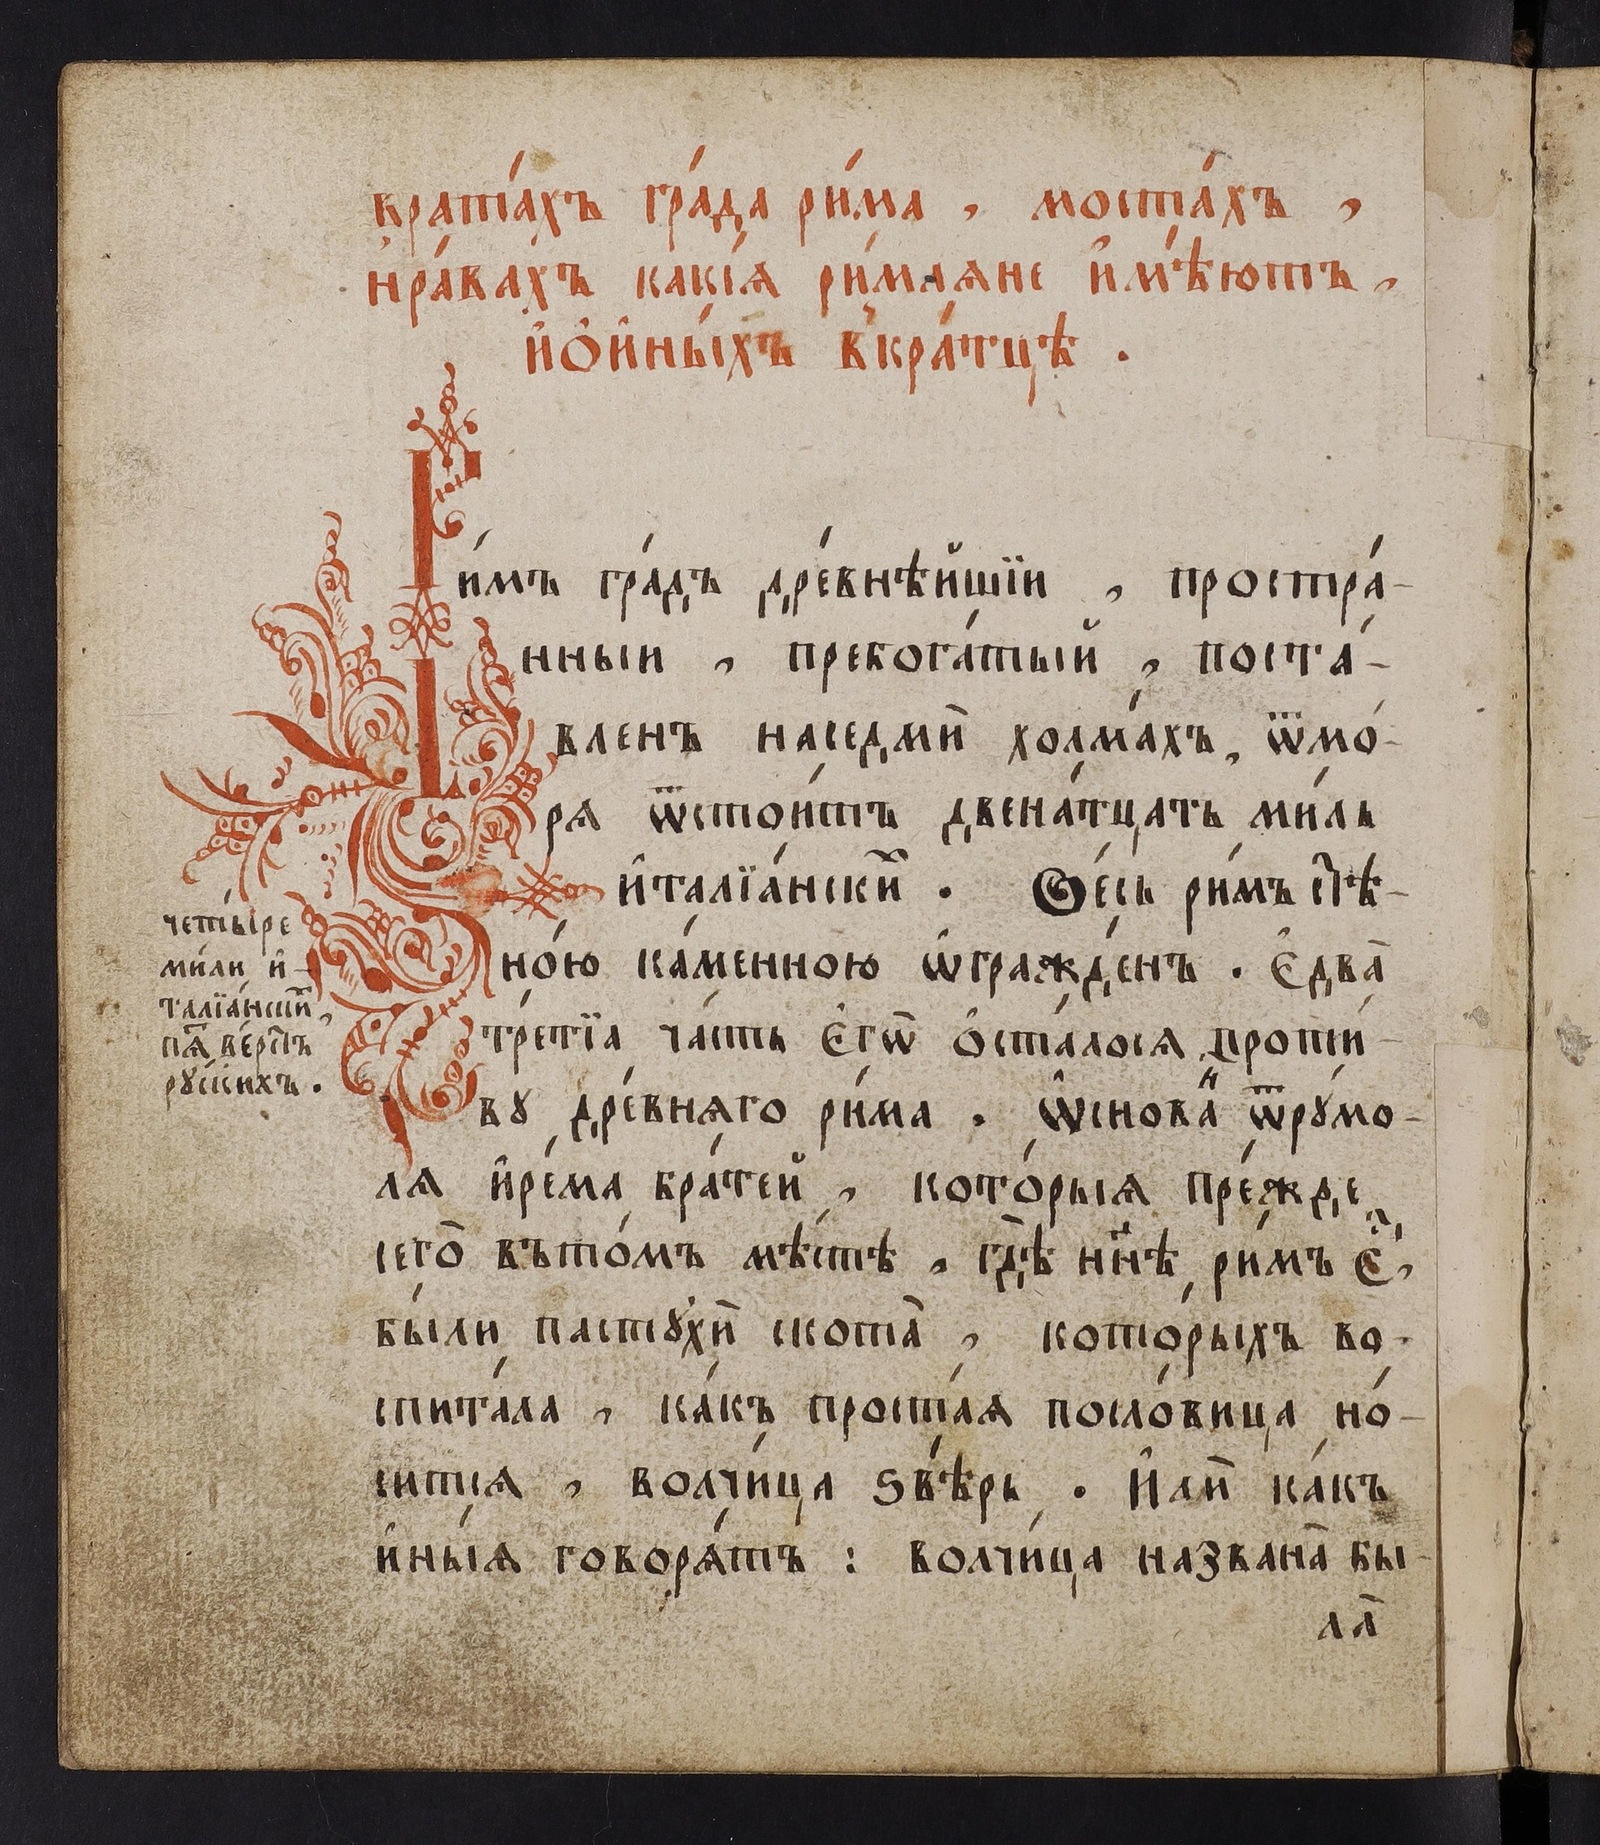 вратáхъ грáда ри́ма , мостáхъ ,
нрáвахъ какі́ѧ ри́млѧне и҆мѣ́ютъ ,
и҆ѻ҆и҆ны́хъ в҆крáтцѣ .
Ри́мъ грáдъ дре́внѣйшїи , прострá-
нныи , пребогáтый , постá-
вленъ наседмѝ холмáхъ, ѿмо́-
рѧ ѿстои́тъ двенáтцать ми́ль
и҆талїáнски̾х . Ѳе́сь ри́мъ стѣ-
но́ю кáменною ѡ҆гражде́нъ . Є҆двà
тре́тїа чáсть є҆гѡ̀ ѻ҆стáлосѧ проти́-
ву дре́внѧго ри́ма . Ѡ҆снова́н ѿру́мо-
лѧ и҆ре́ма брáтей , кото́рыѧ пре́жде
сегѡ̀ вътóмъ мѣ́стѣ , гдѣ̀ нн҃ѣ ри́мъ є҆́с ,
бы́ли пастꙋхѝ скотà , кото́рыхъ во-
спитáла , кáкъ простáѧ посло́вица но́-
ситсѧ , волчи́ца ѕвѣ́рь . И҆лѝ кáкъ
и҆ны́ѧ говорѧ́тъ : волчи́ца названà бы-
лà
четы́ре
ми́ли и҆-
талїáнскїѧ,
пѧ́т ве́рстъ
рꙋ́скихъ .